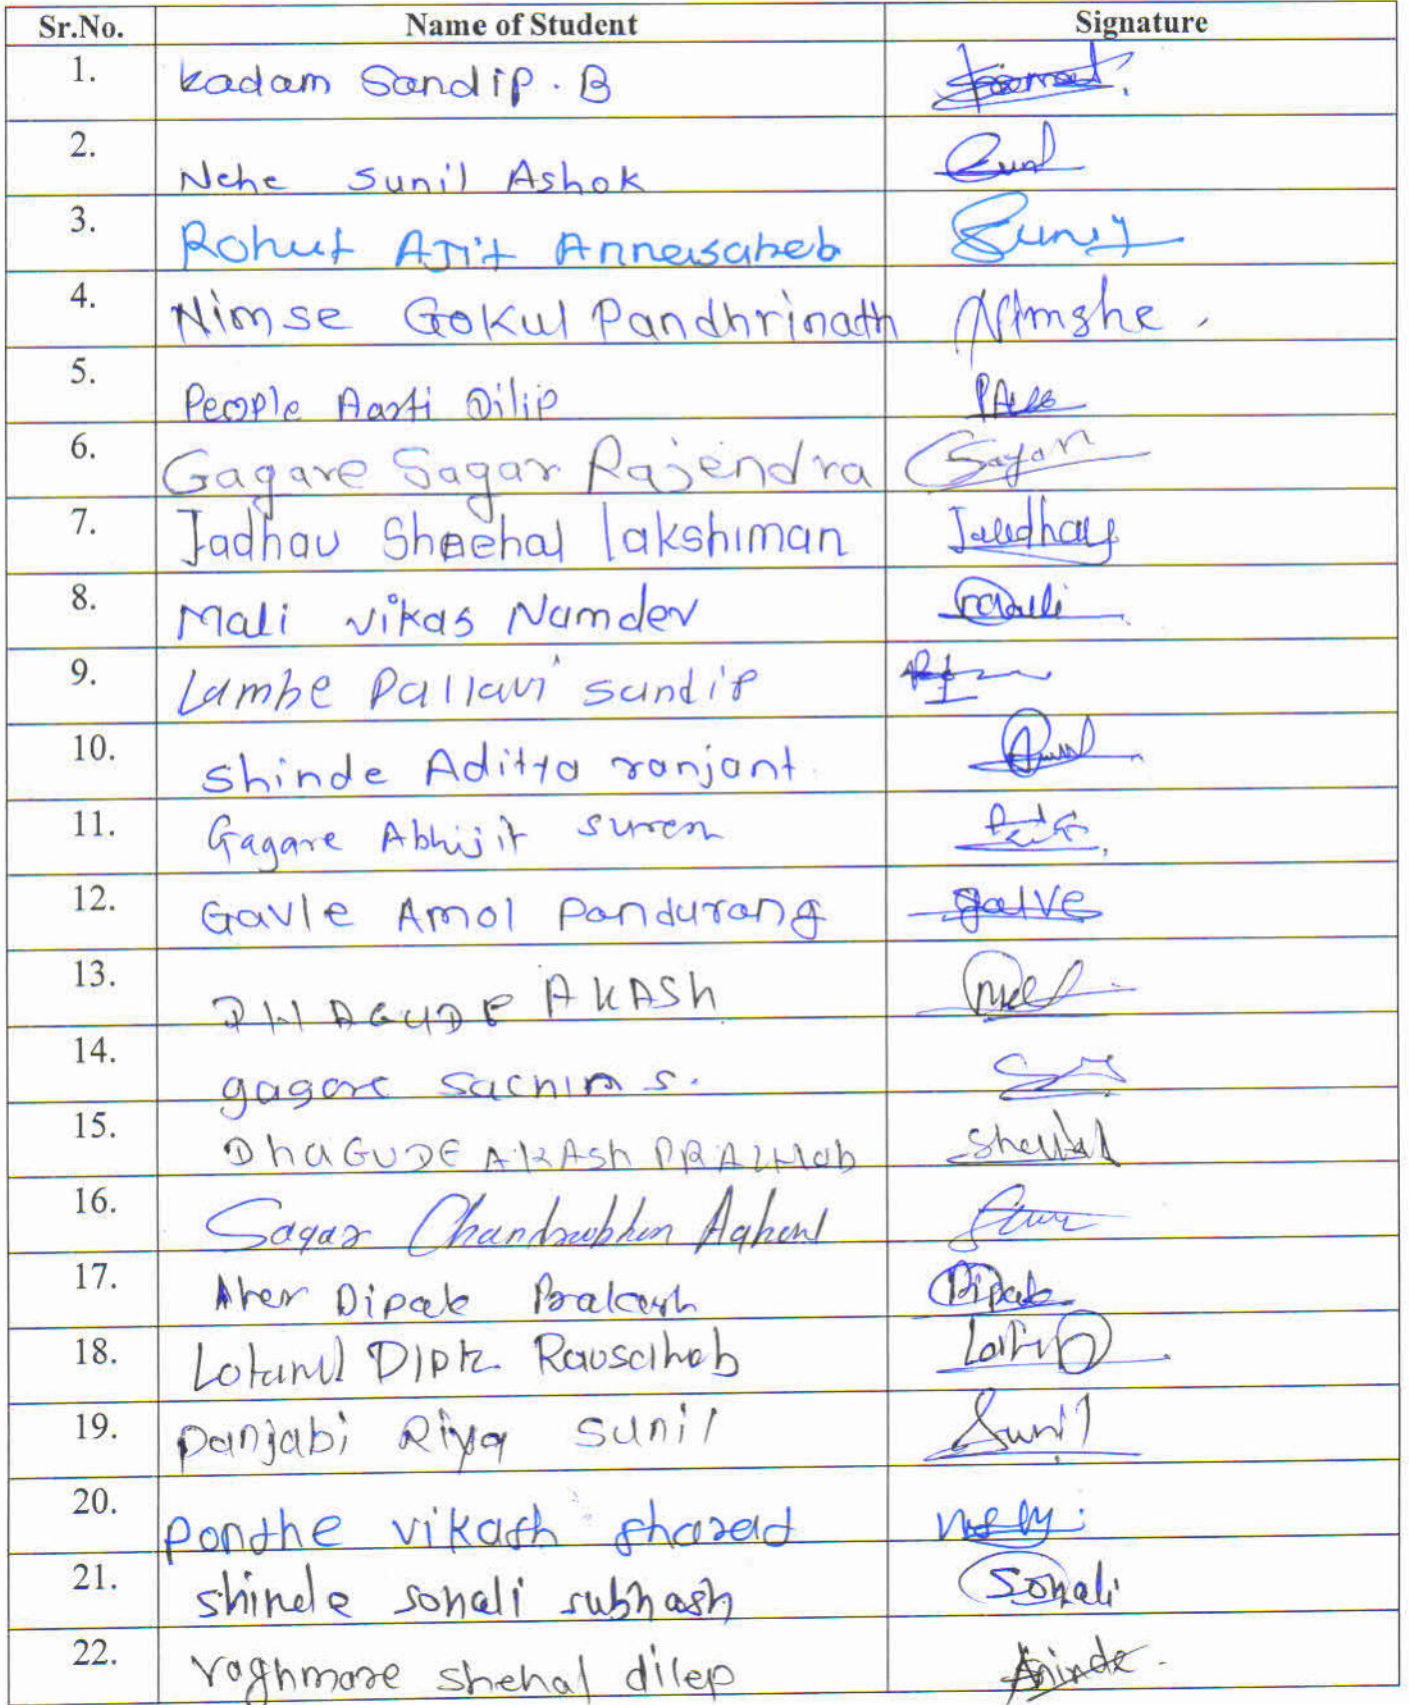 Sr.No. Name of Student Signature
1. Kadam Sandip. B
2. Nehe Sunil Ashok
3. Rohut Ajit Annasaheb
4. Nimse Gokul Pandhrinath Nimshe.
5. People Aarti Dilip
6. Gagare Sagar Rajendra Sagar
7. Jadhav Snehal lakshiman Jadhav
8. Mali vikas Namdev
9. Lambe Pallavi sandip
10. Shinde Aditya ranjant
11. Gagare Abhijit suren
12. Gavle Amol Pandurang galve
13. DHAGUDE AKASh
14. gagare sachin s.
15. DhaGUDE AKASh
16. Sagar
17. Aher Dipak Prakash Dipak
18. Rausaheb
19. panjabi Riya sunil Sunil
20. vikash sharad
21. shinde sonali subhash Sonali
22. vaghmare shehal dilep